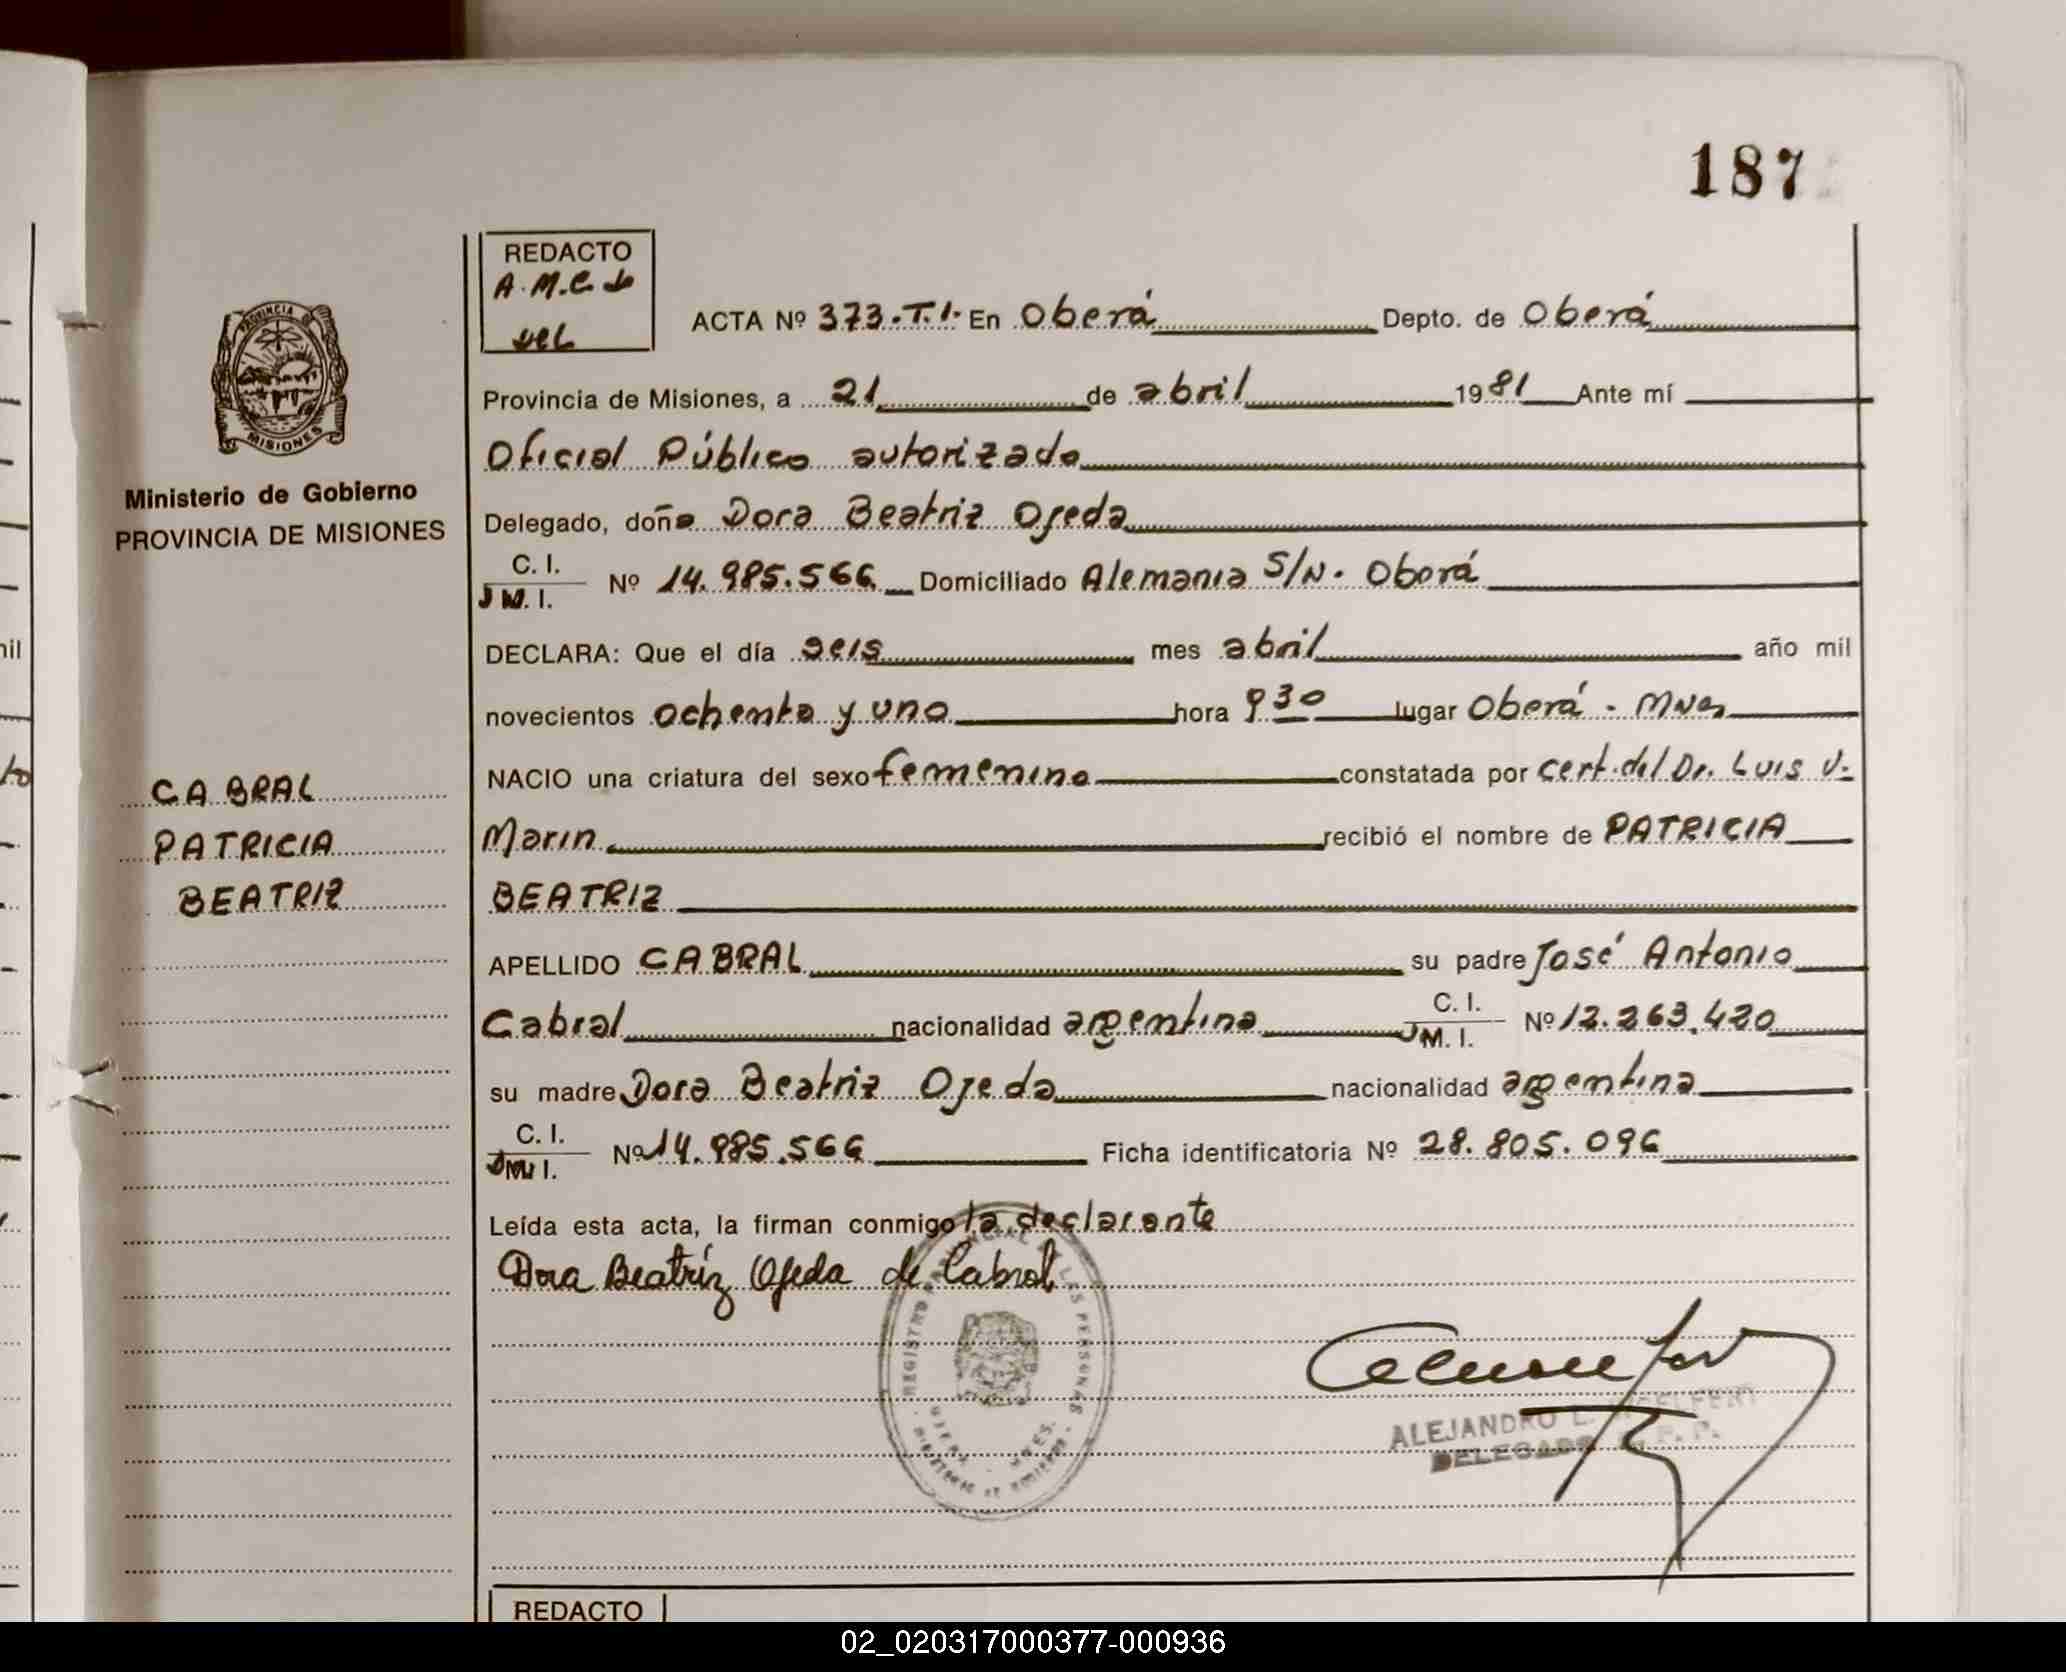 187
REDACTO
A.M.C de
vel
PROVINCIA DE
MISIONES
Ministerio de Gobierno
PROVINCIA DE MISIONES
CABRAL
PATRICIA
BEATRIZ
ACTA Nº 373.T.1. En Oberá Depto. de Oberá
Provincia de Misiones, a 21 de abril 1981 Ante mí
Oficial Público autorizado
Delegado, doña Dora Beatriz Ojeda
C. I.
M. I. Nº 14.985.566 Domiciliado Alemania S/N. Oberá
DECLARA: Que el día seis mes abril año mil
novecientos ochenta y uno hora 9 30 lugar Oberá - Mnes
NACIO una criatura del sexo femenino constatada por cert. del Dr. Luis V.
Marin recibió el nombre de PATRICIA
BEATRIZ
APELLIDO CABRAL su padre José Antonio
Cabral nacionalidad argentina C. I.
M. I. Nº 12.263.420
su madre Dora Beatriz Ojeda nacionalidad argentina
C. I.
M. I. Nº 14.985.566 Ficha identificatoria Nº 28.805.096
Leída esta acta, la firman conmigo la declarante
Dora Beatríz Ojeda de Cabral
REGISTRO PROVINCIAL DE LAS PERSONAS
ALEJANDRO L.
DELEGADO R. P. P.
REDACTO
02_020317000377-000936